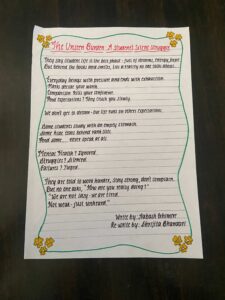 The Unseen Burden: A Student's Silent Struggle
They say student life is the best phase - full of dreams, energy, hope.
But behind the books and smiles, lies a reality no one talks about...
Everyday begins with pressure and ends with comparison.
Marks decide your worth.
Comparison kills your confidence.
And expectations? They crush you slowly.
We don't get to dream - our life runs on others expectations.
Some students study with an empty stomach.
Some hide tears behind rank lists.
And some... never speak at all.
Mental Health? Ignored.
Struggles? Silenced.
Failures? Judged.
They are told to work harder, stay strong, don't complain.
But no one asks, "How are you really doing?"
"We are not lazy - we are tired.
Not weak - just unheard."
Write by: Aakash
Re-write by: Shrijita Bhandari